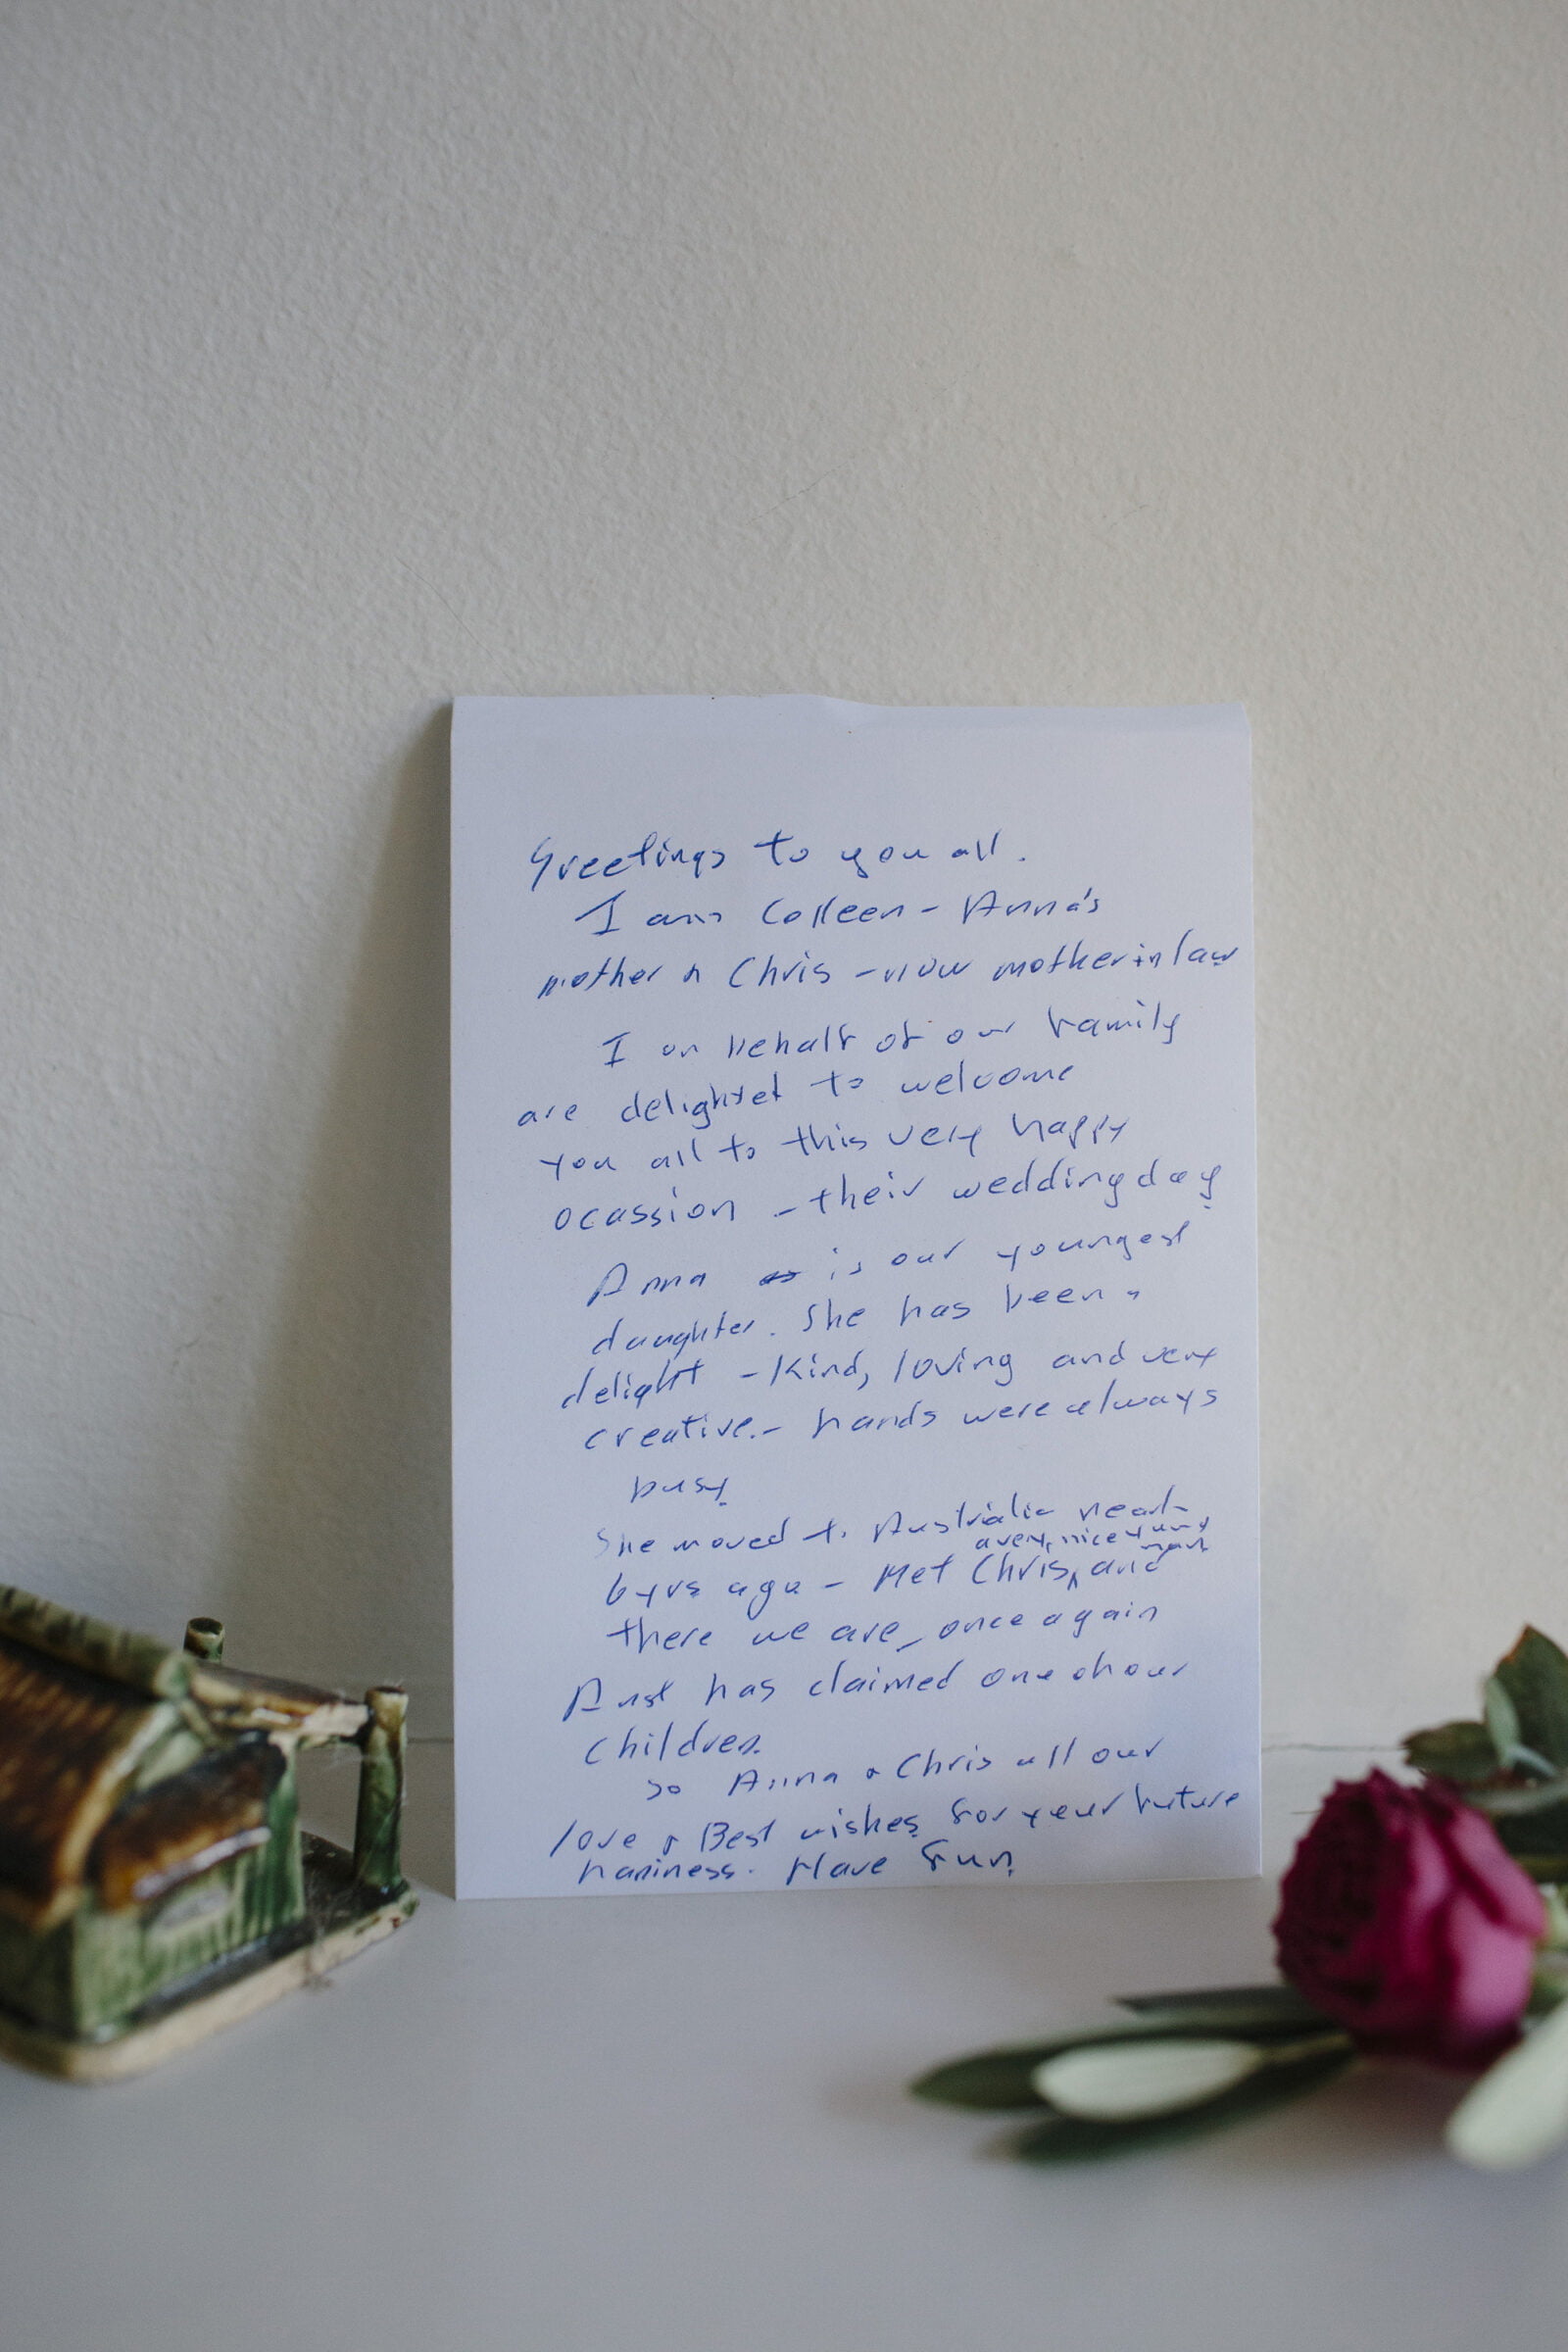 Greetings to you all.
I am Colleen - Anna's
mother & Chris - now mother in law
I on behalf of our family
are delighted to welcome
you all to this very happy
ocassion - their wedding day
Anna is our youngest
daughter. She has been a
delight - Kind, loving and very
creative. - hands were always
busy.
She moved to Australia near
a very nice young man
6 yrs ago - Met Chris, and
there we are, once again
Aust has claimed one of our
children.
So Anna & Chris all our
love & Best wishes for your future
happiness. Have fun.